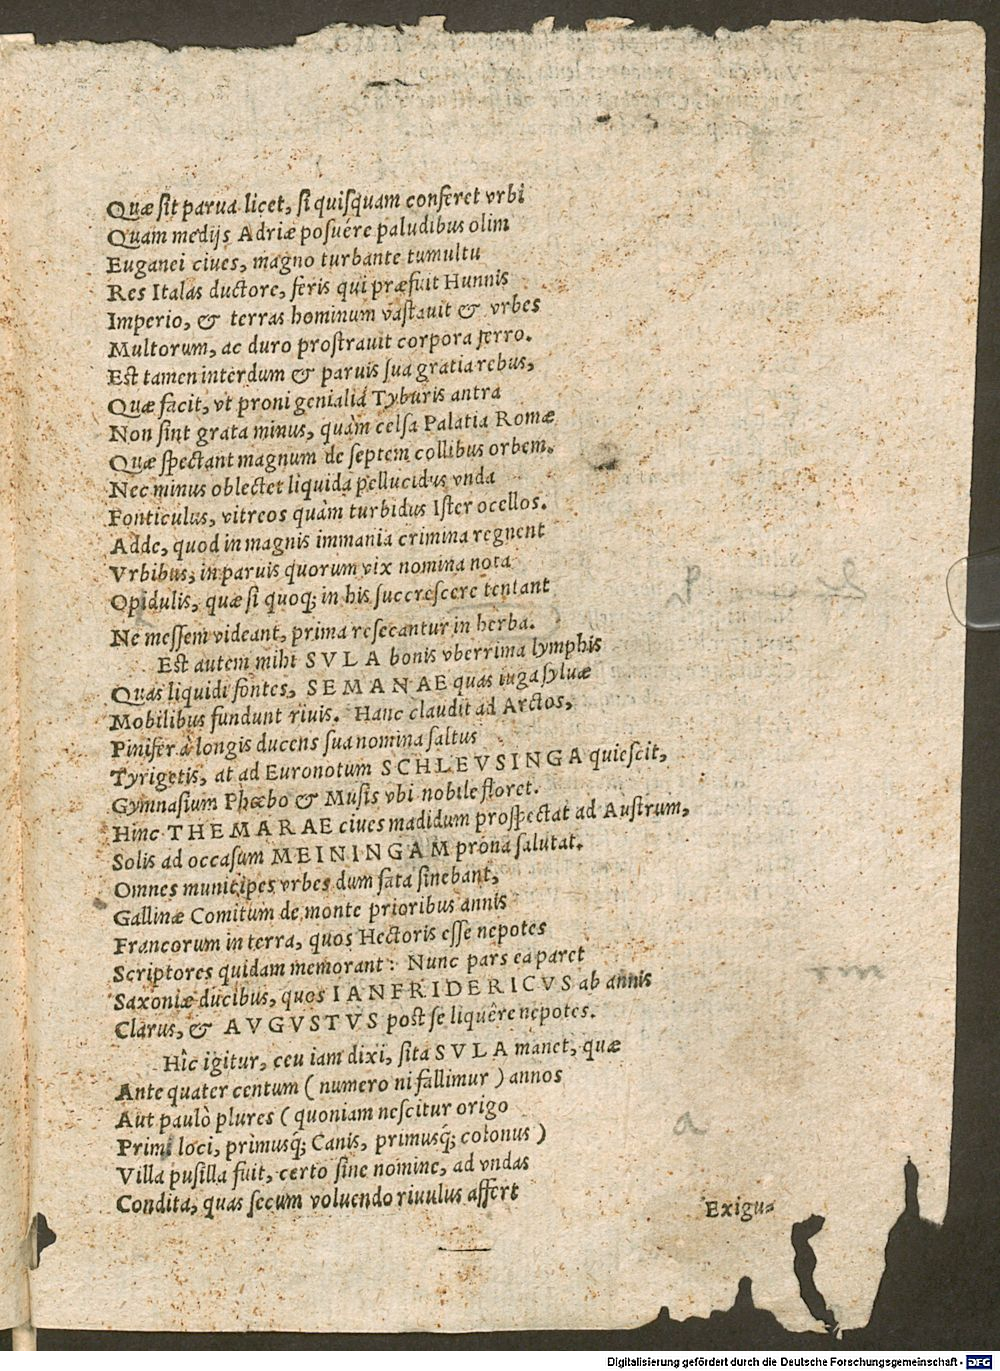 Quæ sit parua licet, si quisquam conferet vrbi
Quam medijs Adriæ posuére paludibus olim
Euganei ciues, magno turbante tumultu
Res Italas ductore, feris qui præfuit Hunnis
Imperio, & terras hominum vastauit & vrbes
Multorum, ac duro prostrauit corpora ferro.
Est tamen interdum & paruis sua gratia rebus,
Quæ facit, vt proni genialia Tyburis antra
Non sint grata minus, quàm celsa Palatia Romæ
Quæ spectant magnum de septem collibus orbem.
Nec minus oblectet liquida pellucidus vnda
Fonticulus, vitreos quàm turbidus Ister ocellos.
Adde, quod in magnis immania crimina regnent
Vrbibus, in paruis quorum vix nomina nota
Opidulis, quæ si quoq; in his succrescere tentant
Ne messem videant, prima resecantur in herba.
Est autem mihi SVLA bonis vberrima lymphis
Quas liquidi fontes, SEMANAE quas iuga syluæ
Mobilibus fundunt riuis. Hanc claudit ad Arctos,
Pinifer à longis ducens sua nomina saltus
Tyrigetis, at ad Euronotum SCHLEVSINGA quiescit,
Gymnasium Phœbo & Musis vbi nobile floret.
Hinc THEMARAE ciues madidum prospectat ad Austrum,
Solis ad occasum MEININGAM prona salutat.
Omnes municipes vrbes dum fata sinebant,
Gallinæ Comitum de monte prioribus annis
Francorum in terra, quos Hectoris esse nepotes
Scriptores quidam memorant: Nunc pars ea paret
Saxoniæ ducibus, quos IANFRIDERICVS ab annis
Clarus, & AVGVSTVS post se liquêre nepotes.
Hîc igitur, ceu iam dixi, sita SVLA manet, quæ
Ante quater centum (numero ni fallimur) annos
Aut paulò plures (quoniam nescitur origo
Primi loci, primusq; Canis, primusq; colonus)
Villa pusilla fuit, certo sine nomine, ad vndas
Condita, quas secum voluendo riuulus affert
Exigu-
Digitalisierung gefördert durch die Deutsche Forschungsgemeinschaft - DFG